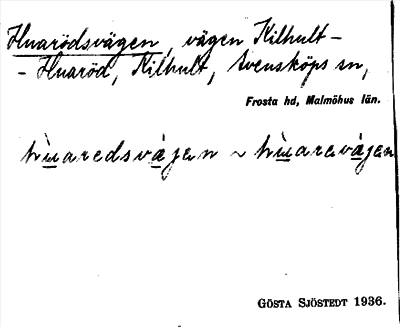 Huarödsvägen, vägen Kilhult-
- Huaröd, Kilhult, Svensköps sn,
Frosta hd, Malmöhus län.
hùaredsvägen ~ hùarevägen
GÖSTA SJÖSTEDT 1936.